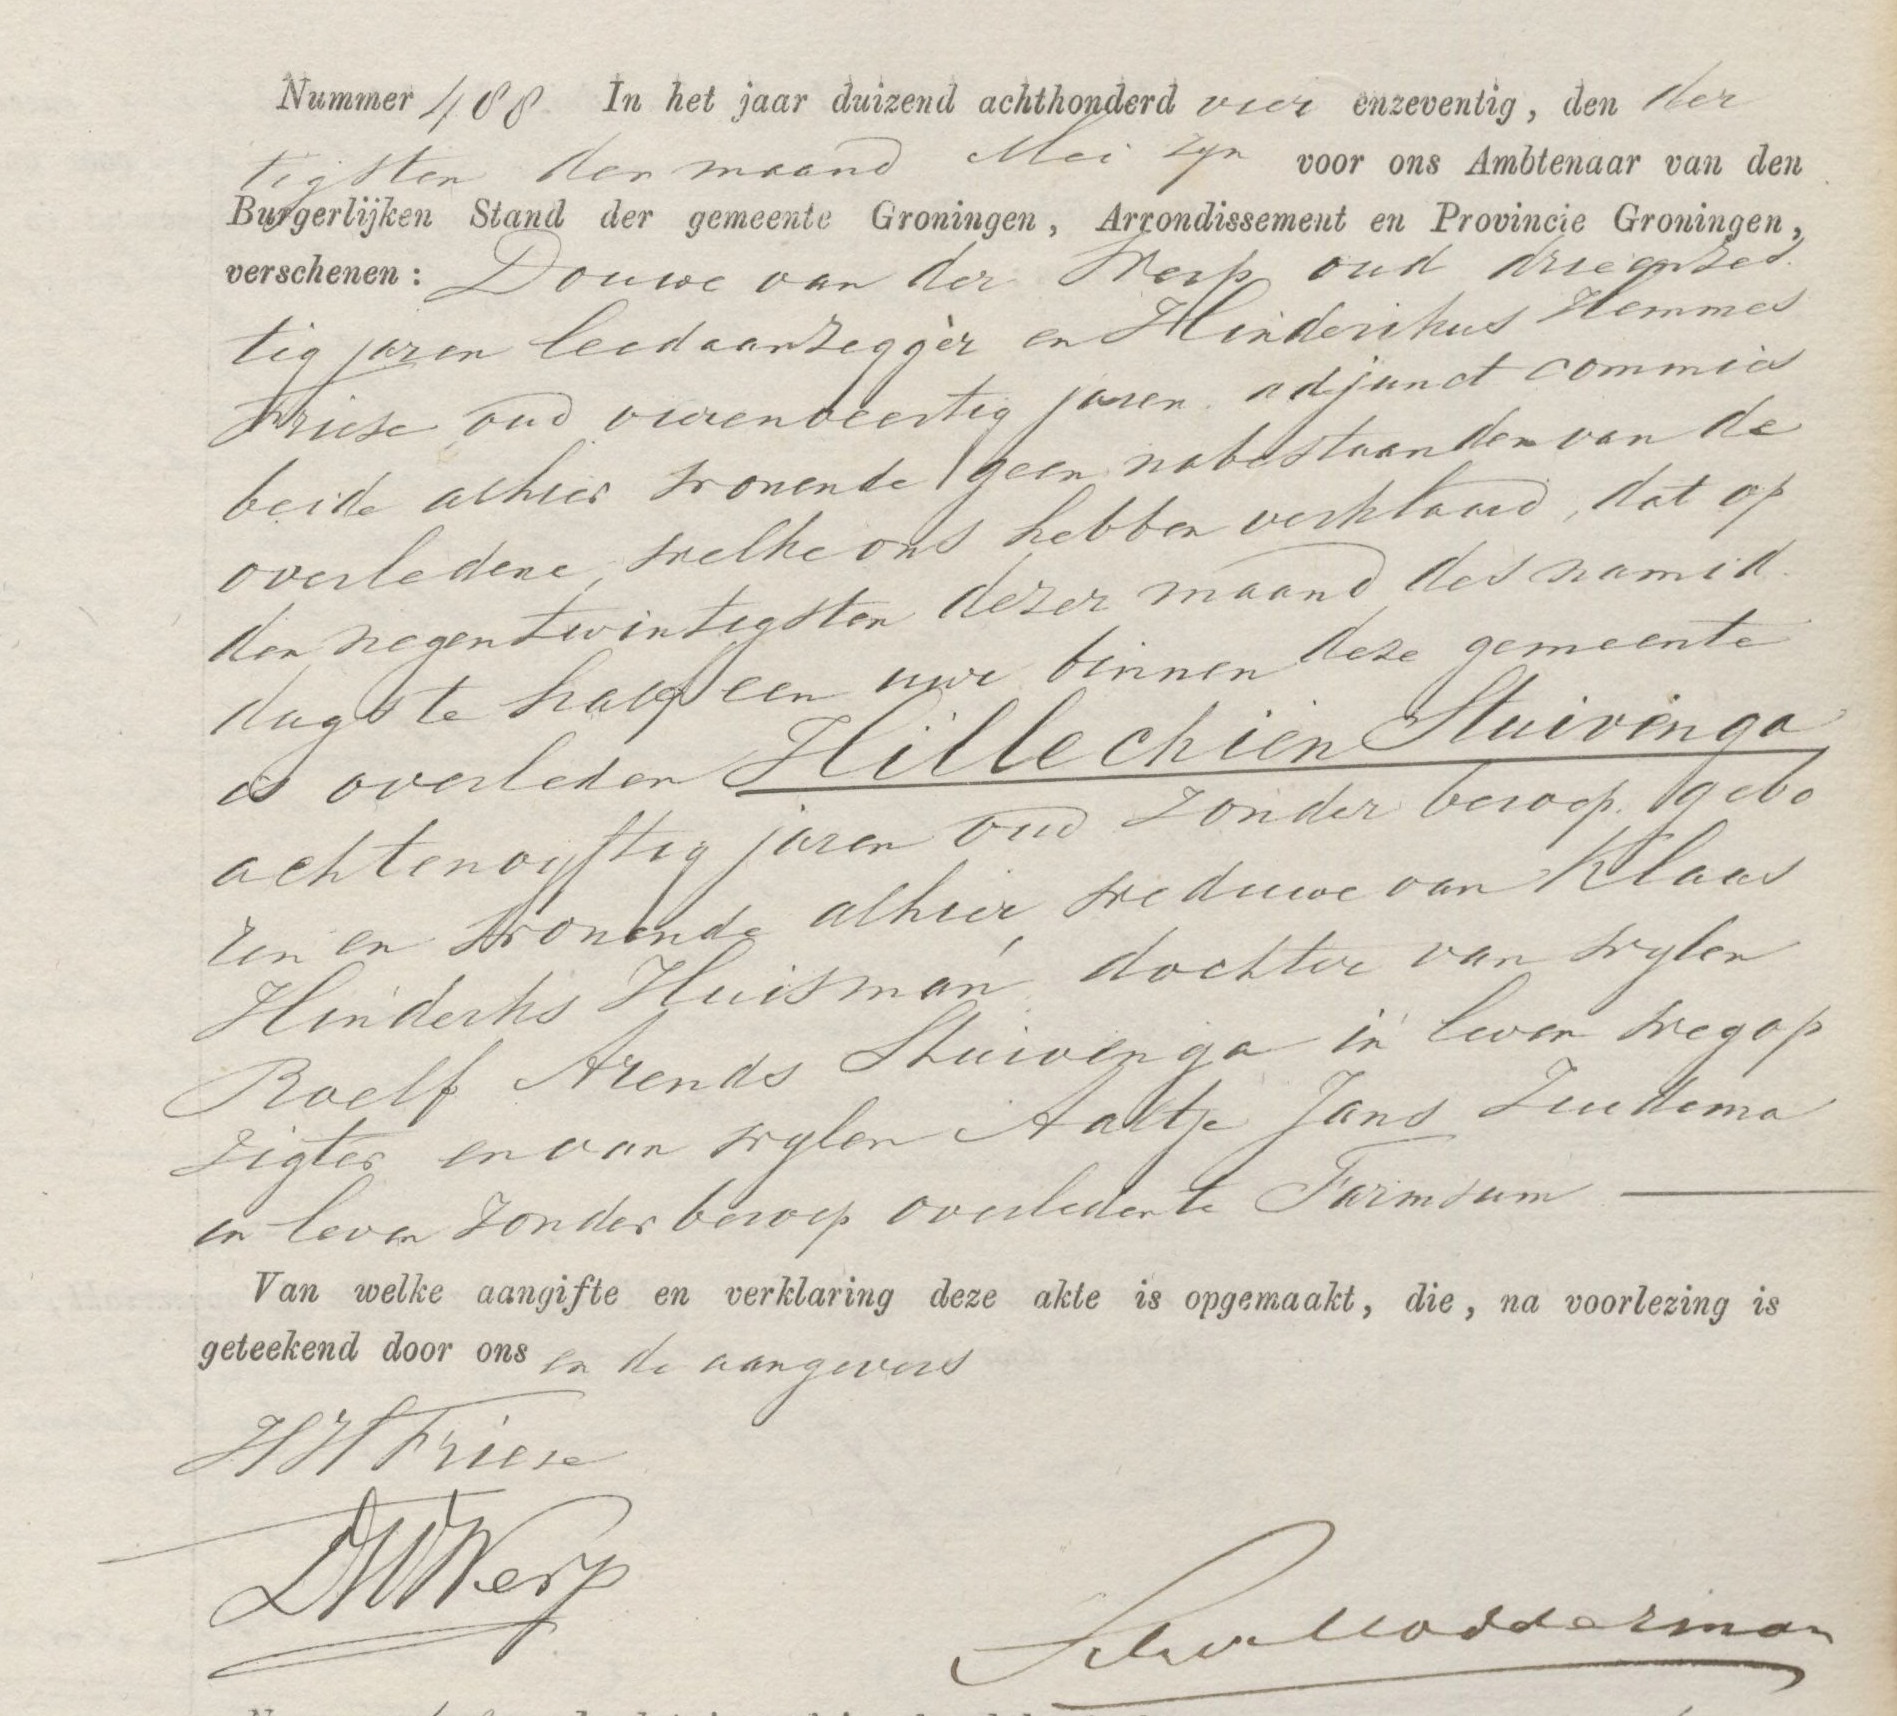 Nummer 488 In het jaar duizend achthonderd vier enzeventig, den der
tigsten der maand Mei zyn voor ons Ambtenaar van den
Burgerlijken Stand der gemeente Groningen, Arrondissement en Provincie Groningen,
verschenen: Douwe van der Werp oud drieenzes
tig jaren leedaanzegger en Hinderikus Hemmes
Friese oud vierenveertig jaren adjunct commies
beide alhier wonende geen nabestaanden van de
overledene, welke ons hebben verklaard, dat op
den negentwintigsten dezer maand des namid
dags te half een ure binnen deze gemeente
is overleden Hillechien Stuivinga
achtenvyftig jaren oud zonder beroep, gebo
ren en wonende alhier, weduwe van Klaas
Hinderks Huisman, dochter van wylen
Roelf Arends Stuivinga in leven wegop
zigter en van wylen Aaltje Jans Zuidema
in leven zonder beroep overleden te Farmsum
Van welke aangifte en verklaring deze akte is opgemaakt, die, na voorlezing is
geteekend door ons en de aangevers
HH Friese
DVD Werp
Modderman